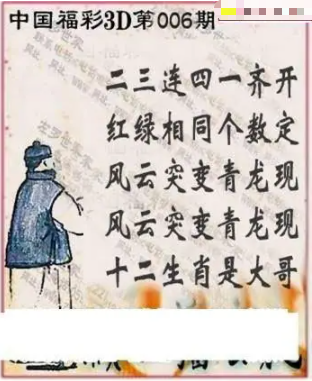 中国福彩3D第006期
二三连四一齐开
红绿相同个数定
风云突变青龙现
风云突变青龙现
十二生肖是大哥